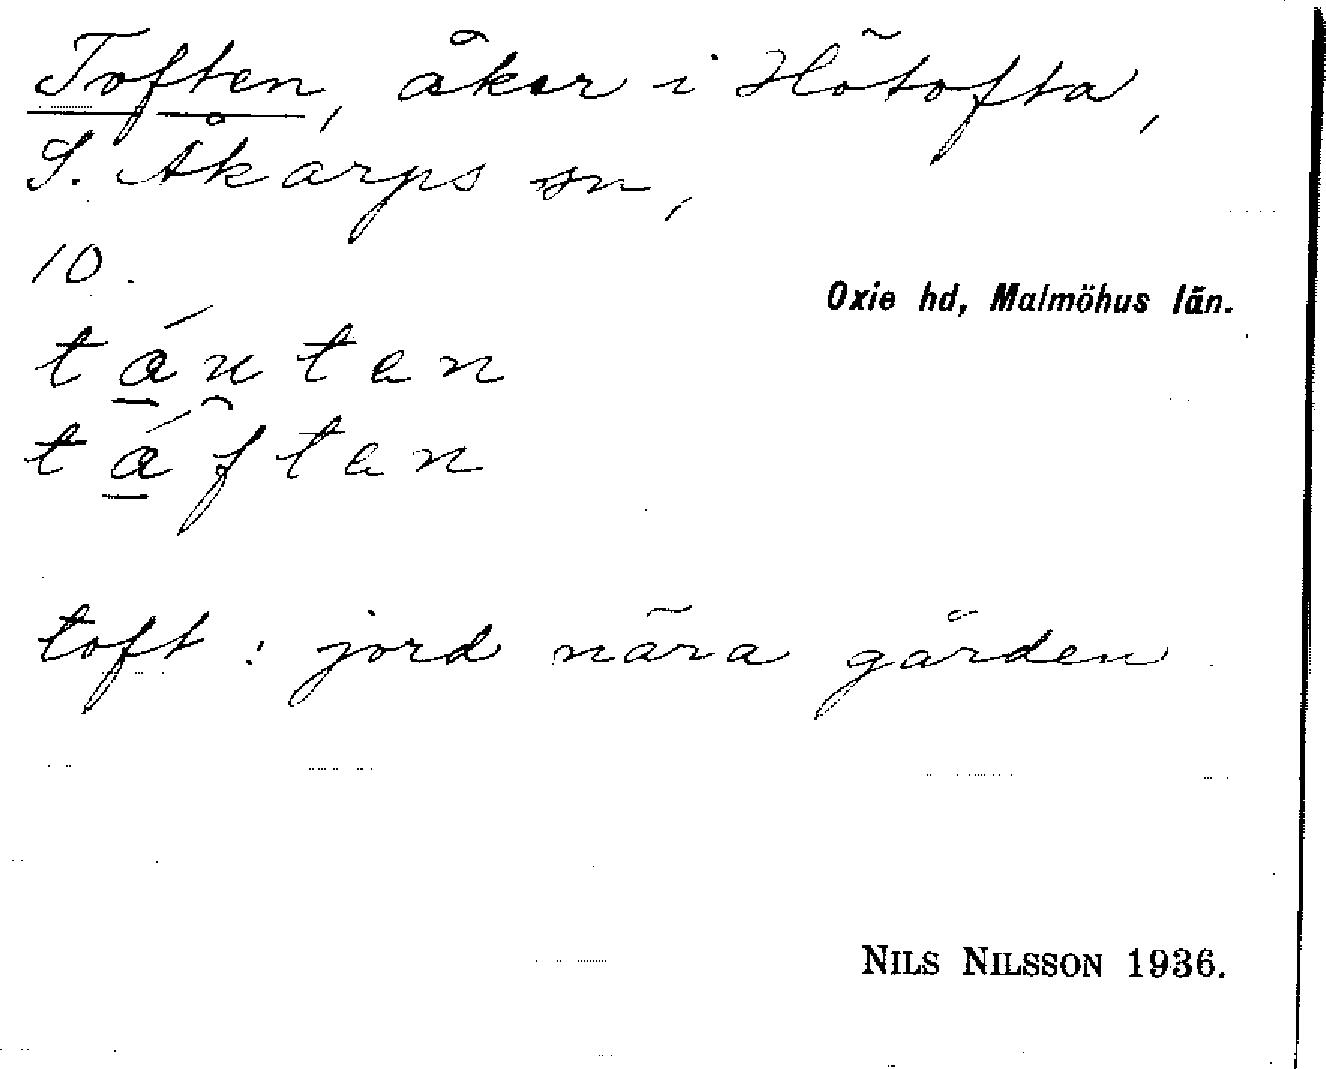 Toften, åker i Hötofta,
S. Åkarps sn,
10.
Oxie hd, Malmöhus län.
tá̱u̯tan
tá̱ftan
toft: jord nära gården
NILS NILSSON 1936.